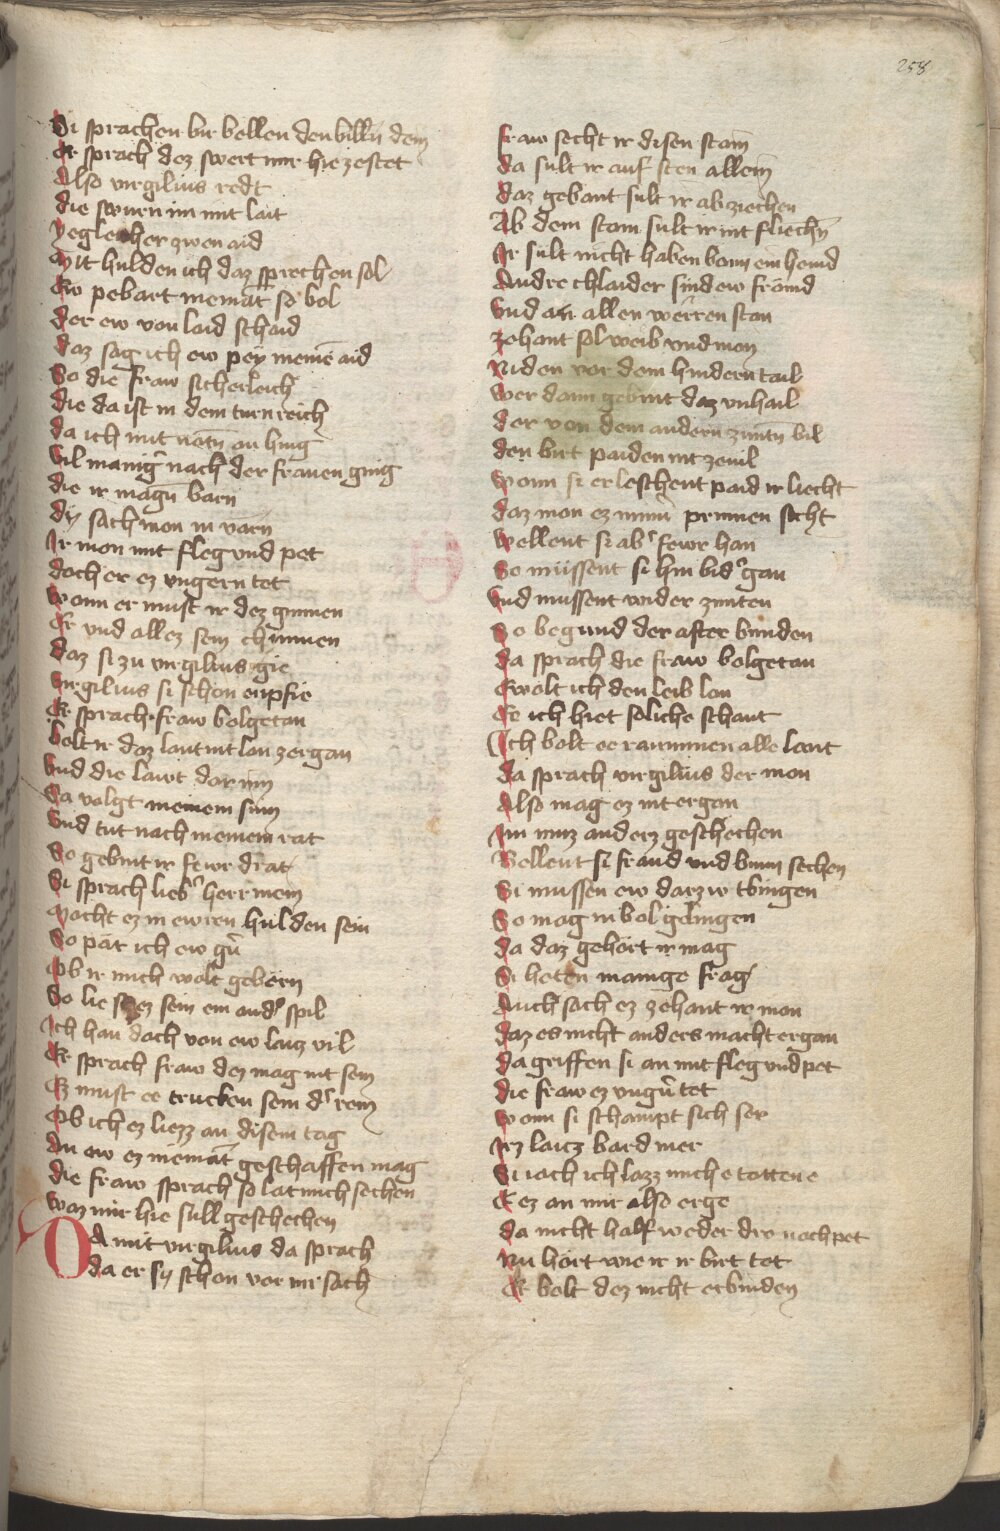 258
Si sprachen bir bellen den billn dem
Er sprach dez swert mir hie zestet
Also virgilius redt
die swurn im mit lait
yegleicher zwen aid
Mit hulden ich daz sprechen sol
Ew pebart niemāt so bol
der ew von laid schaid
daz sag ich ew pey meinē aid
So die fraw sicherleich
die da ist in dem turn reich
da ich mit nötn an hing
Vil manigˢ nach der frauen ging
die ir magn̄ barn
dy sach mon in varn
Ir mon mit fleg vnd pet
doch er ez vngern tet
Wonn er must ir dez gunnen
Er vnd allez sein chunnen
daz si zu virgilius gie
Virgilius si schon enpfie
Er sprach fraw bolgetan
bolt ir daz lant nit lan zergan
Vnd die lawt dor inn
Sa volgt meinem sinn
Vnd tut nach meinem rat
So gebint ir fewr drat
Si sprach liebˢ herr mein
Mocht ez in ewren hulden sein
So pät ich ew gˢn
Ob ir mich wolt gebern
So lie szez sein ein andˢ spil
Ich han doch von ew laiz vil
Er sprach fraw dez mag nit sein
Ez must ee trucken sein dˢ rein
Ob ich ez liezz an disem tag
An ew ez niemāt geschaffen mag
die fraw sprach so lat mich sechen
Waz mir hie süll geschechen
DA mit virgilius da sprach
da er sy schon vor mir sach
fraw secht ir disen stam
da sult ir auf sten allein
daz gebant sult ir ab ziechen
Ab dem stam sult ir nit fliechn̄
Ir sult nicht haben bann ein hemd
Andre chlaider sind ew frömd
Vnd an allen werren stan
zehant sol weib vnd mon
Niden vor dem hindern tail
Wer dann gebint daz vnhail
der von dem andern zuntn bil
den birt paiden nit ze uil
Wonn si erleschent paid ir liecht
daz mon ez nimˢ prinnen sicht
Wellent si abˢ fewr han
So müssent si hin bidˢ gan
Vnd mussent wider zunten
So begund der after bunden
da sprach die fraw bolgetan
Ewolt ich den leib lan
Ee ich hiet soliche schant
Ich bolt ee raummen alle lant
da sprach virgilius der mon
Also mag ez nit ergan
Im muz anderz geschechen
Bellent si fraud vnd bunn sechen
Si mussen ew darzw tbingen
So mag in bol gelingen
da daz gehört ir mag
Si heten manige frag
Auch sach ez zehant ir mon
daz es nicht anders macht ergan
da griffen si an mit fleg vnd pet
die fraw ez vngˢn tet
Wonn si schampt sich ser
Irz laicz bard mer
Si iach ich lazz mich e tottene
E ez an mir also erge
da nicht half weder dro noch pet
Nu hört wie ir ir birt tet
Er bolt dez nicht erbinden